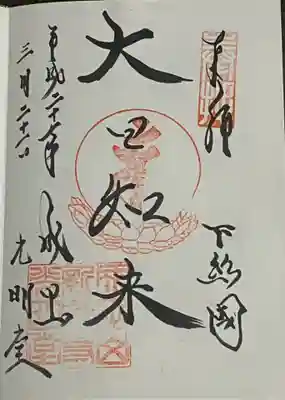 奉拝
下総國
大日如来
平成二十六年
三月二十一日
成田山
光明堂